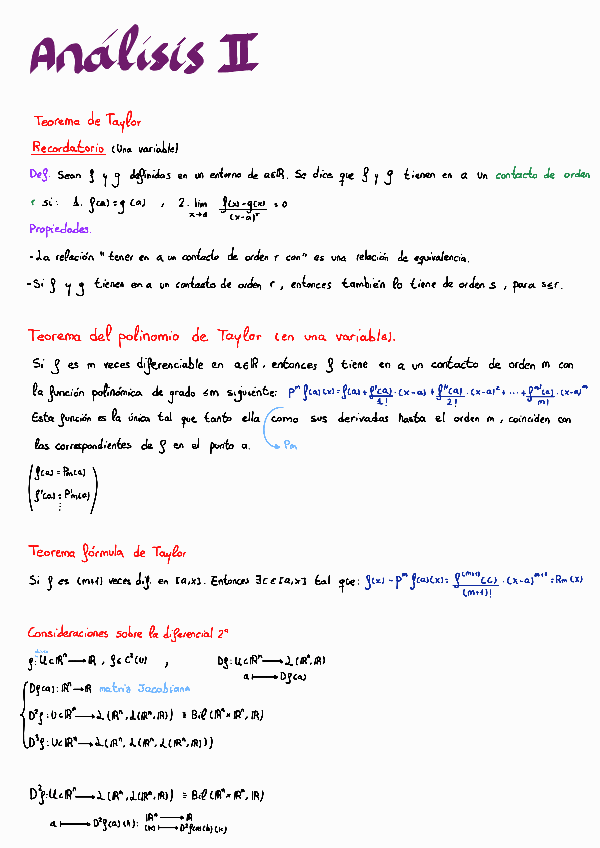 Análisis II
Teorema de Taylor
Recordatorio (Una variable)
Def. Sean f y g definidas en un entorno de a∈ℝ. Se dice que f y g tienen en a un contacto de orden
r si: 1. f(a)=g(a) , 2. lim x→a (f(x)-g(x))/(x-a)^r = 0
Propiedades.
-La relación "tener en a un contacto de orden r con" es una relación de equivalencia.
-Si f y g tienen en a un contacto de orden r, entonces también lo tiene de orden s, para s≤r.
Teorema del polinomio de Taylor (en una variable).
Si f es m veces diferenciable en a∈ℝ, entonces f tiene en a un contacto de orden m con
la función polinómica de grado ≤m siguiente: P^m f(a)(x)=f(a)+f'(a)/1!·(x-a)+f''(a)/2!·(x-a)²+...+f^(m)(a)/m!·(x-a)^m
Esta función es la única tal que tanto ella como sus derivadas hasta el orden m, coinciden con
las correspondientes de f en el punto a. Pm
f(a)=Pm(a)
f'(a)=P'm(a)
⋮
Teorema fórmula de Taylor
Si f es (m+1) veces dif. en [a,x]. Entonces ∃c∈[a,x] tal que: f(x)-P^m f(a)(x)= f^(m+1)(c)/(m+1)! ·(x-a)^(m+1) =Rm(x)
Consideraciones sobre la diferencial 2ª
f: U⊂ℝⁿ→ℝ, f∈C²(U) , Df: U⊂ℝⁿ→L(ℝⁿ,ℝ)
a↦Df(a)
Df(a): ℝⁿ→ℝ matriz Jacobiana
D²f: U⊂ℝⁿ→L(ℝⁿ, L(ℝⁿ,ℝ)) ≡ Bil(ℝⁿ×ℝⁿ,ℝ)
D³f: U⊂ℝⁿ→L(ℝⁿ, L(ℝⁿ, L(ℝⁿ,ℝ)))
D²f: U⊂ℝⁿ→L(ℝⁿ, L(ℝⁿ,ℝ)) ≡ Bil(ℝⁿ×ℝⁿ,ℝ)
a↦D²f(a)(h): ℝⁿ→ℝ
(k)↦D²f(a)(h)(k)